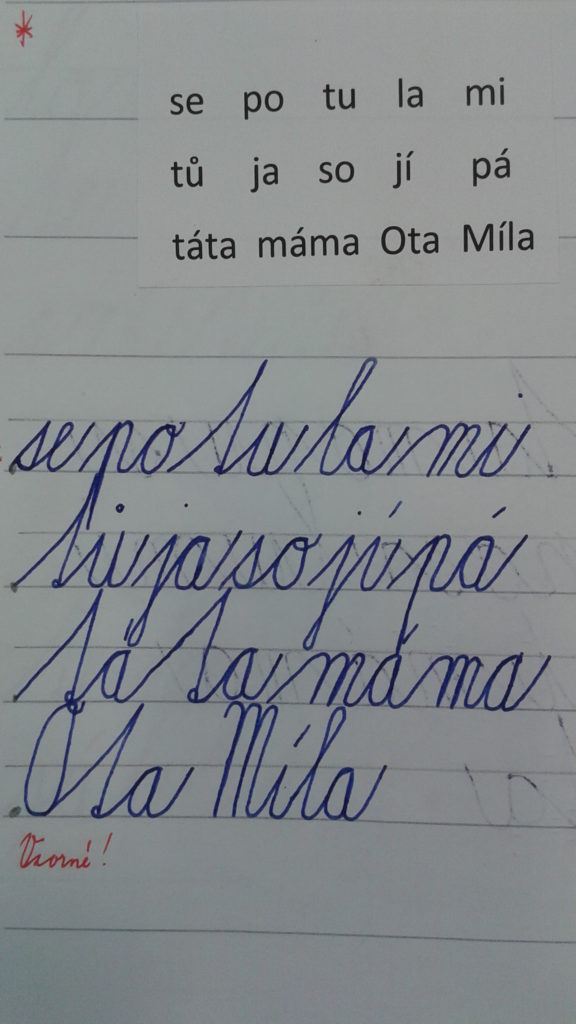 *
se po tu la mi
tů ja so jí pá
táta máma Ota Míla
se po tu la mi
tů ja so jí pá
táta máma
Ota Míla
Vzorné!